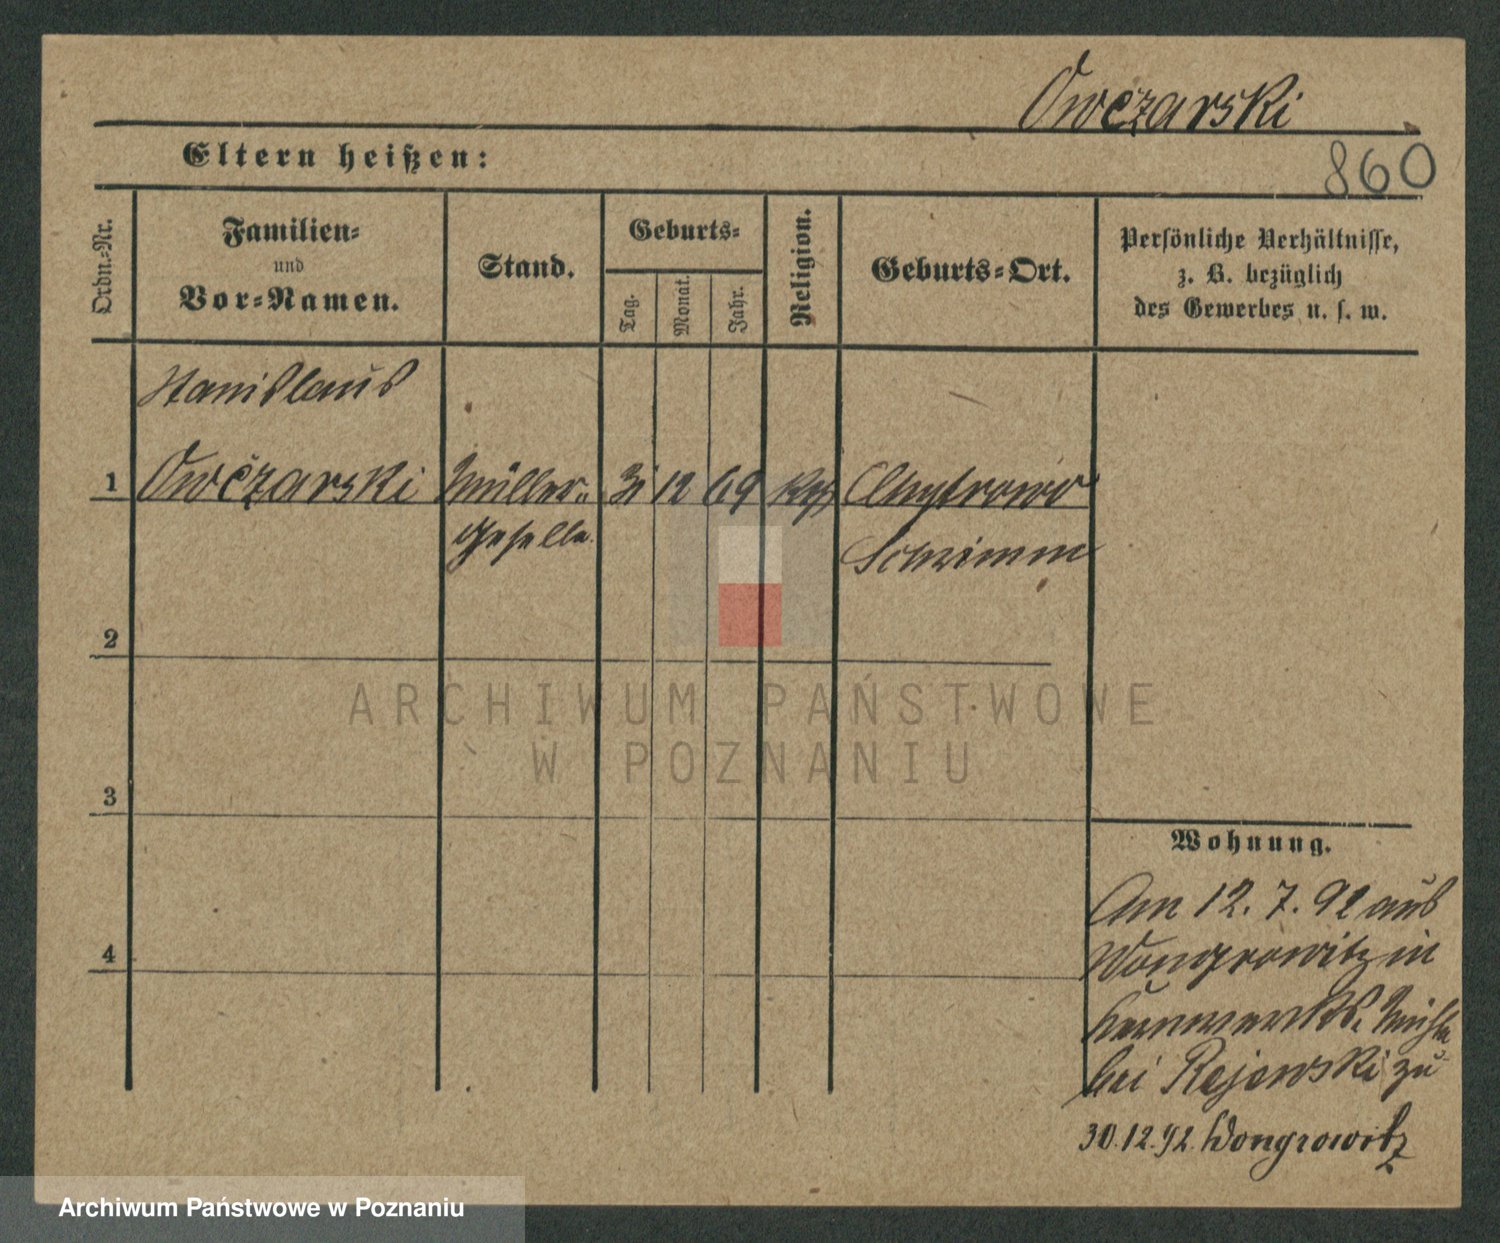 Owczarski
Eltern heißen:
860
Ordn.-Nr.
Familien-
und
Vor-Namen.
Stand.
Geburts-
Tag.
Monat.
Jahr.
Religion.
Geburts-Ort.
Persönliche Verhältnisse,
z. B. bezüglich
des Gewerbes u. s. w.
Stanislaus
1 Owczarski Müller- 12 69 Chytrowo
geselle Schrimm
2
ARCHIWUM PAŃSTWOWE
W POZNANIU
3
Wohnung.
Am 12. 7. 92 aus
4
Wongrowitz in
Kernwerks. Mühle
bei Rejewski zu
30.12.92. Wongrowitz
Archiwum Państwowe w Poznaniu